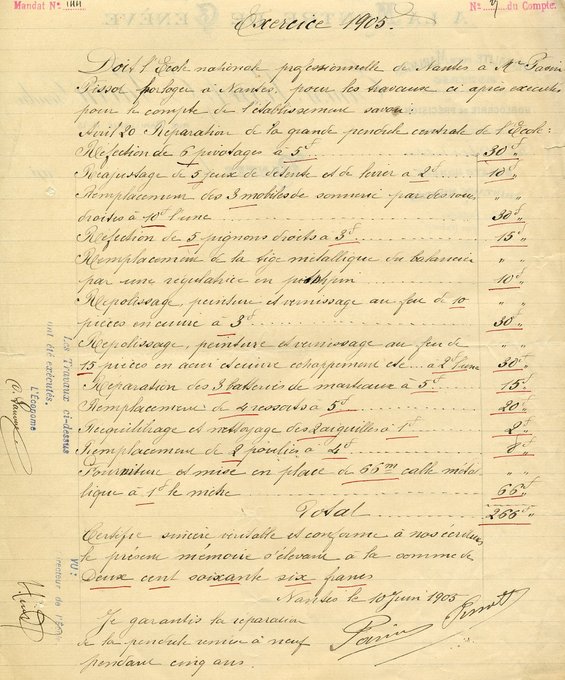 Mandat No
No 9 du Compte.
Exercice 1905.
Doit l'Ecole nationale professionnelle de Nantes à Mr
horloger à Nantes, pour les travaux ci après exécutés
pour le compte de l'établissement savoir
Avril 20 Réparation de la grande pendule centrale de l'Ecole:
Réfection de 6 pivotages à 5f 30f "
Réajustage de 5 jeux de détente et de levier à 2f 10f "
Remplacement des 3 mobiles de sonnerie par des roues " "
droites à 10f l'une 30f "
Réfection de 5 pignons droits à 3f 15f "
Remplacement de la tige métallique du balancier " "
par une régulatrice en pitchpin 10f "
Repolissage, peinture et vernissage au feu de 10 " "
pièces en cuivre à 3f 30f "
Repolissage, peinture et vernissage au feu de " "
15 pièces en acier et cuivre échappement etc à 2f l'une 30f "
Réparation des 3 batteries de marteaux à 5f 15f "
Remplacement de 4 ressorts à 5f 20f "
Rééquilibrage et nettoyage des 2 aiguilles à 1f 2f "
Remplacement de 2 poulies à 4f 8f "
Fourniture et mise en place de 66m cable métal " "
lique à 1f le mètre 66f "
Total 266f "
Certifié sincère véritable et conforme à nos écritures
le présent mémoire s'élevant à la somme de
Deux cent soixante six francs
Nantes le 10 Juin 1905
Je garantis la réparation
de la pendule remise à neuf
pendant cinq ans.
Les Travaux ci-dessus
ont été exécutés.
L'Econome
VU:
Directeur de l'Ecole